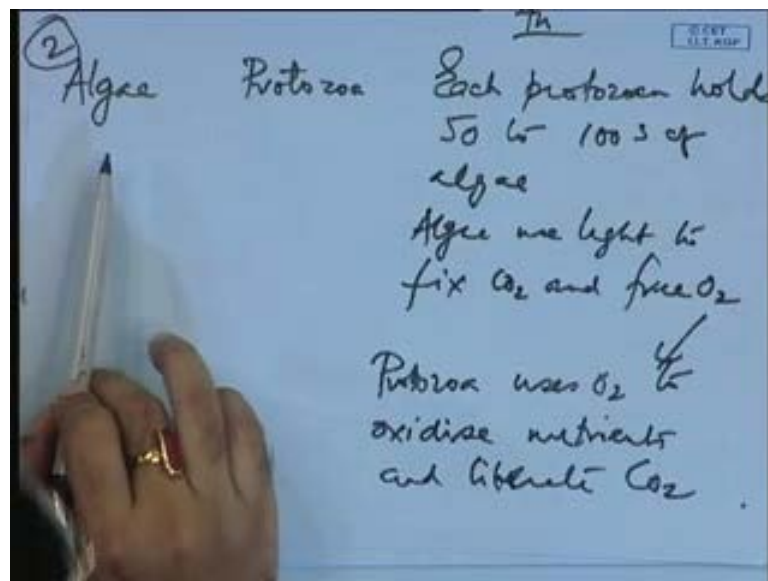 ②
Algae Protozoa Each protozoan holds
50 to 100s of
algae
Algae use light to
fix CO₂ and free O₂
Protozoa uses O₂ to
oxidise nutrients
and liberate CO₂
© CET
I.I.T. KGP